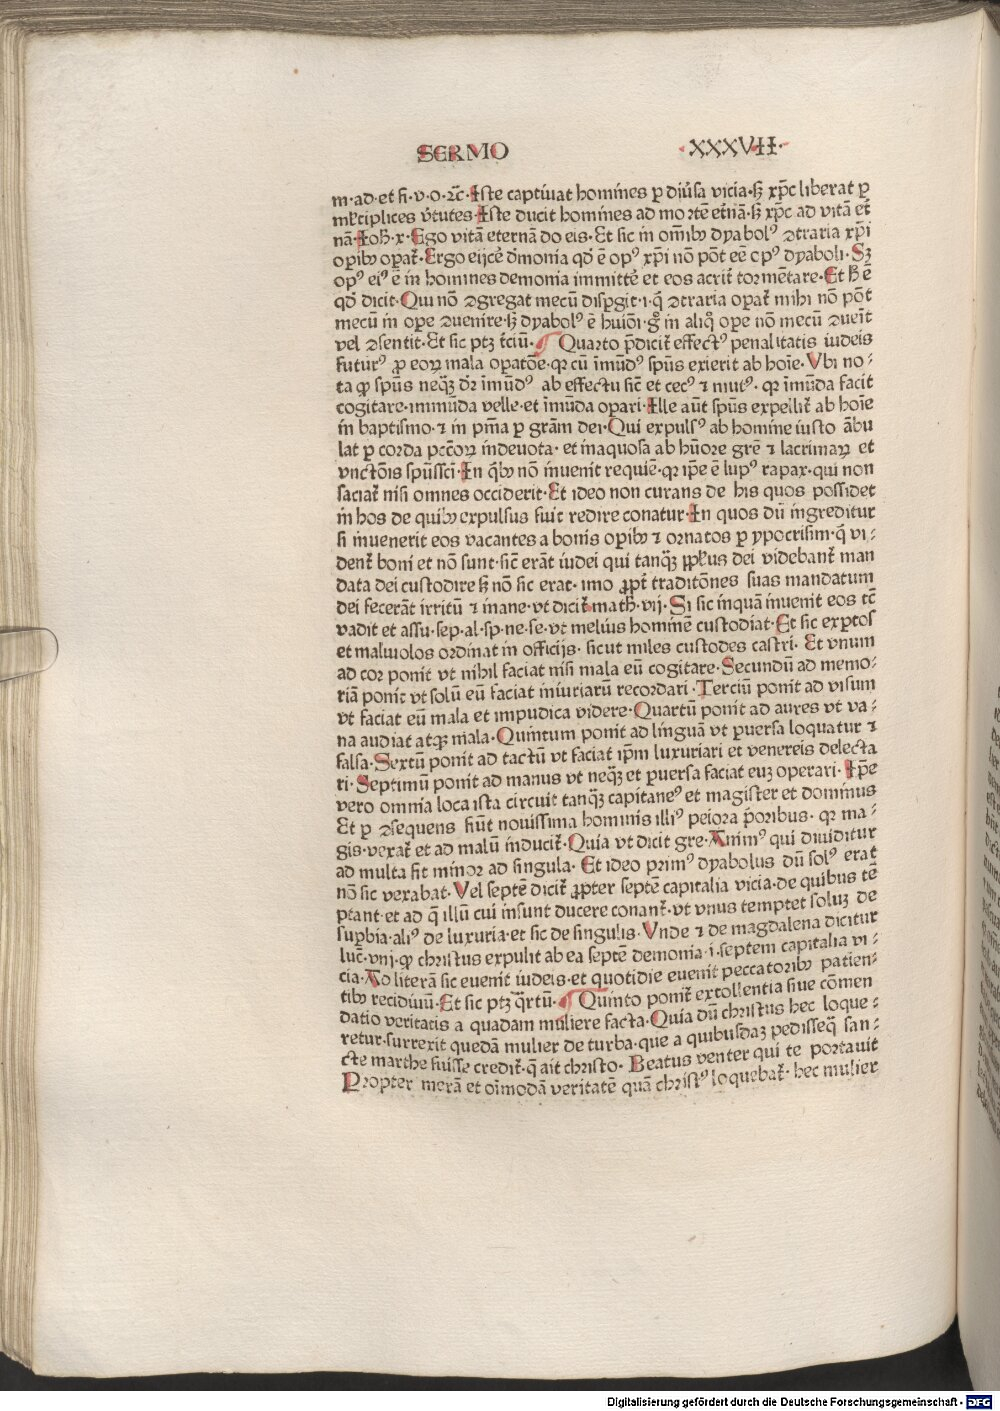 SERMO ·XXXVII·
m·ad·et fi·v·o·⁊c̄·Iste captiuat homines ꝑ diũsa vicia·sꝫ xp̄c liberat ꝑ
ml̓tiplices v̓tutes·Iste ducit homines ad mortē et̓nā·sꝫ xp̄c ad vitā et̓
nā·Ioh̄·x·Ego vitā eternā do eis·Et sic in om̄ibꝰ dyabolꝰ ꝯtraria xp̄i
oꝑibꝰ oꝑat̓·Ergo eijcē d̓monia qd̓ ē opꝰ xp̄i nō pōt eē opꝰ dyaboli·Sꝫ
opꝰ eiꝰ ē in homines demonia immitte̓ et eos acrit̓ tormētare·Et h̄ ē
qd̓ dicit·Qui nō ꝯgregat mecū disꝑgit·i·q̄ ꝯtraria oꝑat̓ mihi nō pōt
mecū in oꝑe ꝯuenire·sꝫ dyabolꝰ ē huiōi·gͦ in aliqͦ oꝑe nō mecū ꝯueīt
vel ꝯsentit·Et sic ptꝫ t̓ciū· Quarto p̄dicit̓ effectꝰ penalitatis iudeis
futurꝰ ꝓ eoꝝ mala oꝑatōe·qꝛ cū īmūdꝰ spūs exierit ab hoīe·Vbi no⸗
ta ꝙ spūs neqͣꝫ dr̄ īmūdꝰ ab effectu sic̄ et cecꝰ ⁊ mutꝰ· qꝛ īmūda facit
cogitare·immūda velle·et īmūda oꝑari·Ille aūt spūs expellit̓ ab hoīe
in baptismo·⁊ in pnīa ꝑ grām dei·Qui expulsꝰ ab homine iusto ābu
lat ꝑ corda pctōꝝ indeuota· et inaquosa ab hūore grē ⁊ lacrimaꝝ et
vnctōis spūssc̄i·In qͥbꝰ nō inuenit requiē·qꝛ ip̄e ē lupꝰ rapax·qui non
saciat̓ nisi omnes occiderit·Et ideo non curans de his quos possidet
in hos de quibꝰ expulsus fuit redire conatur·In quos dū ingreditur
si inuenerit eos vacantes a bonis oꝑibꝰ ⁊ ornatos ꝑ ypocrisim·q̄ vi⸗
dent̓ boni et nō sunt·sic̄ erāt iudei qui tanqͣꝫ ꝓpl̓us dei videbant̓ man
data dei custodire sꝫ nō sic erat· imo ꝓpt̓ traditōnes suas mandatum
dei fecerāt irritū ⁊ inane·vt dicit̓·math̓·vij·Si sic inquā inuenit eos tc̄
vadit et assu·sep·al·sp·ne·se·vt melius hominē custodiat·Et sic exꝑtos
et maluiolos ordinat in officijs· sicut miles custodes castri· Et vnum
ad cor ponit vt nihil faciat nisi mala eū cogitare·Secundū ad memo⸗
riā ponit vt solū eū faciat iniuriarū recordari·Terciū ponit ad visum
vt faciat eū mala et impudica videre·Quartū ponit ad aures vt va⸗
na audiat atqꝫ mala·Quintum ponit ad linguā vt ꝑuersa loquatur ⁊
falsa·Sextū ponit ad tactū vt faciat ip̄m luxuriari et venereis delecta
ri·Septimū ponit ad manus vt neqͣꝫ et ꝑuersa faciat euꝫ operari·Ip̄e
vero omnia loca ista circuit tanqͣꝫ capitaneꝰ et magister et dominus
Et ꝑ ꝯsequens fiūt nouissima hominis illiꝰ peiora p̄oribus· qꝛ ma⸗
gis·vexat̓ et ad malū inducit̓·Quia vt dicit gre·Animꝰ qui diuiditur
ad multa fit minor ad singula· Et ideo primꝰ dyabolus dū solꝰ erat
nō sic vexabat·Vel septē dicit̓ ꝓpter septē capitalia vicia·de quibus tē
ptant·et ad q̄ illū cui insunt ducere conant̓·vt vnus temptet soluꝫ de
suꝑbia·aliꝰ de luxuria·et sic de singulis·Vnde ⁊ de magdalena dicitur
luc̄·viij·ꝙ christus expulit ab ea septē demonia·i·septem capitalia vi⸗
cia·Ad literā sic euenit iudeis·et quotidie euenit peccatoribꝰ patien⸗
tibꝰ recidiuiū·Et sic ptꝫ qͣrtū· Quinto ponit̓ extollentia siue cōmen
datio veritatis a quadam muliere facta·Quia dū christus hec loque⸗
retur·surrexit quedā mulier de turba·que a quibusdaꝫ pedisseq̄ san⸗
cte marthe fuisse credit̓·q̄ ait christo· Beatus venter qui te portauit
Propter merā et oīmodā veritatē quā christꝰ loquebat̓· hec mulier
Digitalisierung gefördert durch die Deutsche Forschungsgemeinschaft - DFG